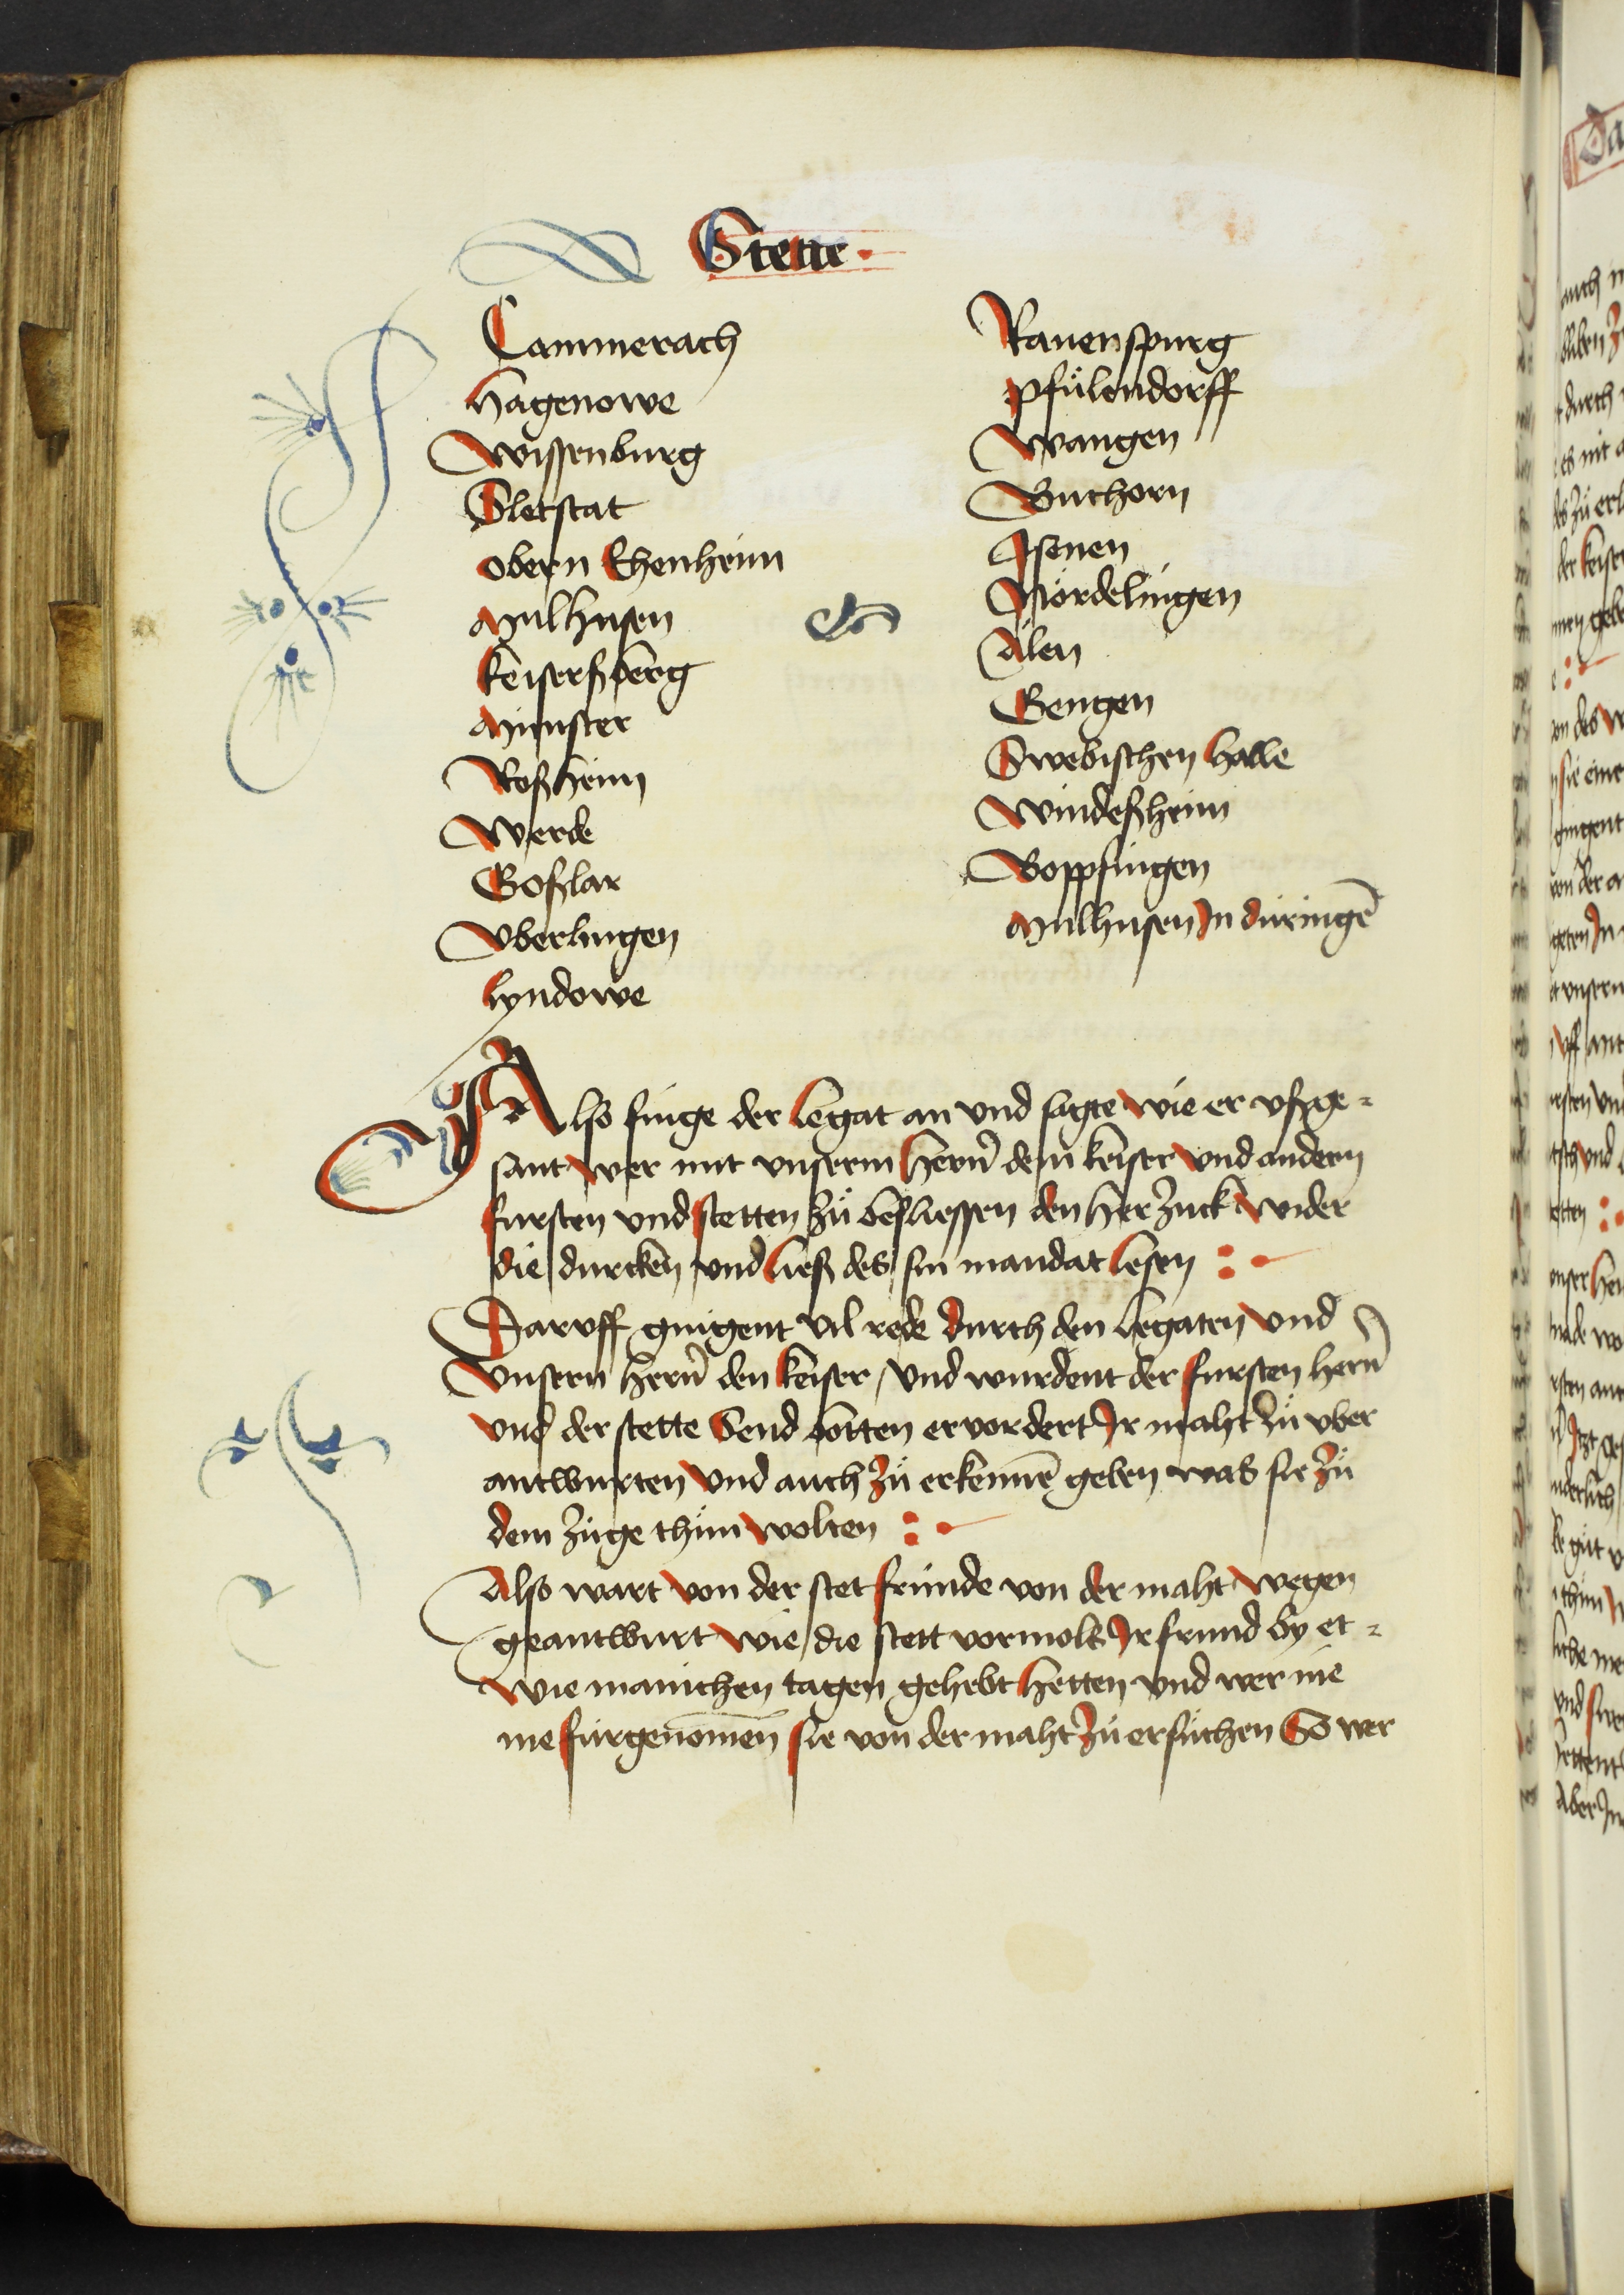 Stette
Cammerach
Hagenowe
Wissenburg
Sletstat
obern Ehenheim
Mulhusen
Keisersz berg
Munster
Roszheim
Werde
Goszlar
Vberlingen
Lyndowe
Rauenspurg
Pfülendorff
Wangen
Buchorn
Isenen
Nördelingen
Alen
Gengen
Swebischen Halle
Windeszheim
Boppfingen
Mulhusen In düringē
Also finge der Legat an vnd sagte wie er vszge-
sant wer mit vnserm Hern̄ dem keiser vnd andern
fursten vnd stetten zů besliessen den Her zuck wider
die durcken vnd liesz des sin mandat lesen
Daruff gingent vil rede durch den Legaten vnd
vnsern Hern̄ den keiser / vnd wurdent der fursten Hern̄
vnd der stette Send botten ervordert Ir maht zů vber
antwurten vnd auch zů erkennē geben was sie zů
dem zuge thůn wolten
Also wart von der stet fründe von der maht wegen
geantwurt wie die stett vormols Ir frund by et-
wie manichen tagen gehebt Hetten vnd wer nie
me fürgenomen sie von der maht zů ersůchen So wer